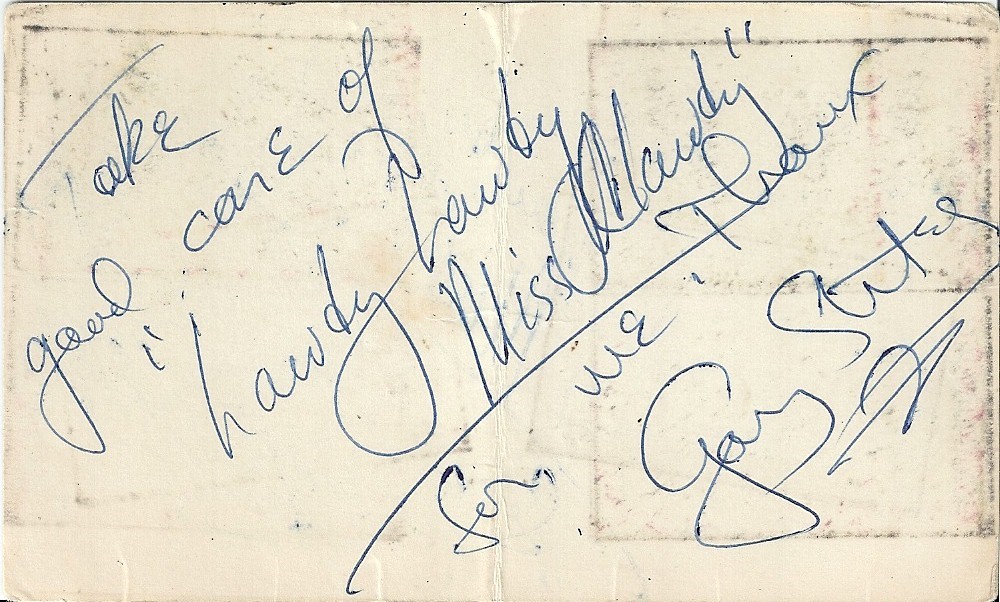 Take
good care of
"Lawdy Lawdy
Miss Clawdy"
for me! Thanx
Gary Stites